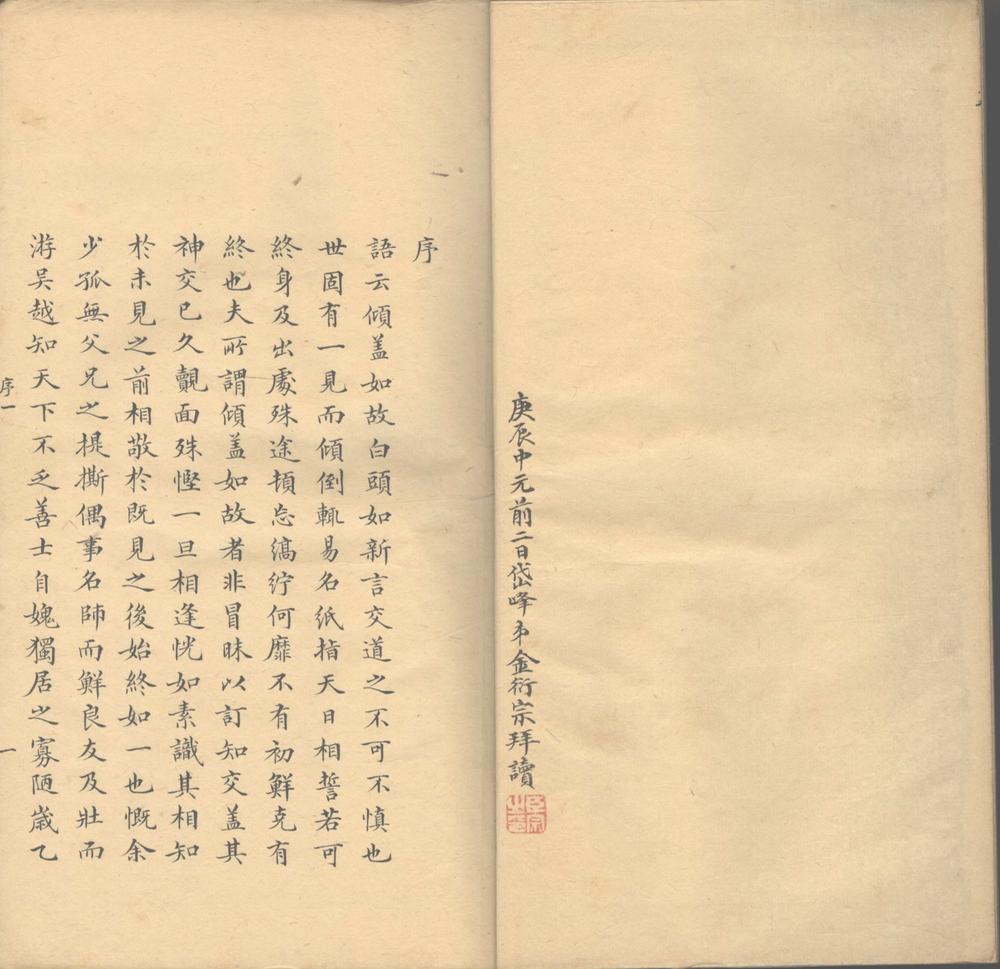 庚辰中元前二日岱峰弟金衍宗拜讀
序
語云傾盖如故白頭如新言交道之不可不慎也
世固有一見而傾倒輒易名紙指天日相誓若可
終身及出處殊途頓忘縞紵何靡不有初鮮克有
終也夫所謂傾盖如故者非冒昧以訂知交盖其
神交已久覿面殊慳一旦相逢恍如素識其相知
於未見之前相敬於既見之後始終如一也慨余
少孤無父兄之提撕偶事名師而鮮良友及壯而
游吴越知天下不乏善士自媿獨居之寡陋歲乙
序一
一